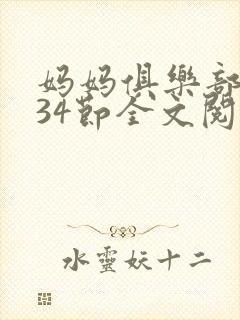 妈妈俱樂部
34節全文閱
水靈妖十二